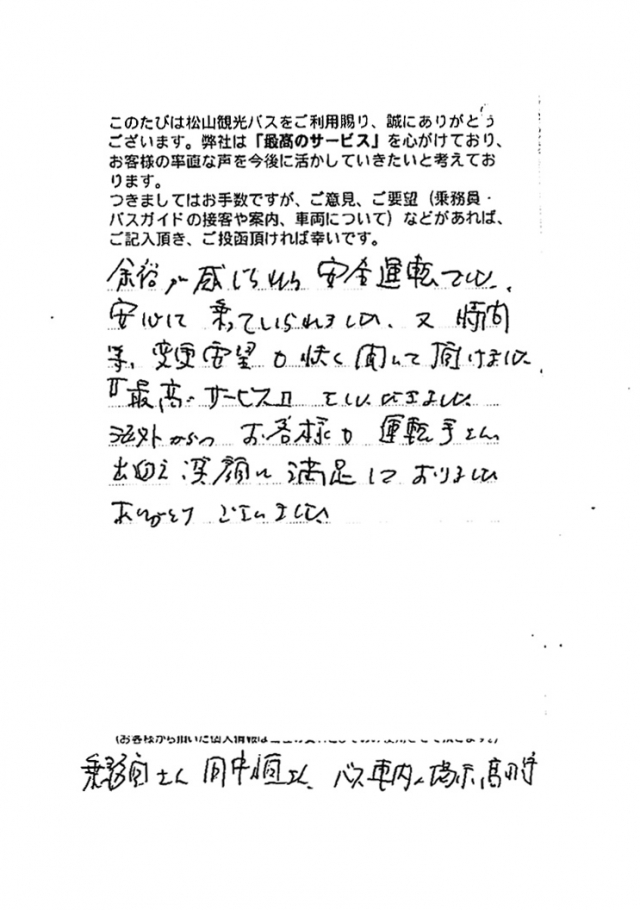 このたびは松山観光バスをご利用賜り、誠にありがとう
ございます。弊社は「最高のサービス」を心がけており、
お客様の率直な声を今後に活かしていきたいと考えてお
ります。
つきましてはお手数ですが、ご意見、ご要望（乗務員・
バスガイドの接客や案内、車両について）などがあれば、
ご記入頂き、ご投函頂ければ幸いです。
余裕が感じられる 安全運転でした。
安心して 乗っていられました、又 時間
等、変更要望も快く聞いて頂けました
『最高のサービス』でした
海外からの お客様も 運転手さん
出迎え 笑顔に 満足しておりました
ありがとう ございました
(お客様から頂いた個人情報は
乗務員さん 田中 さん、バス車内の掲示